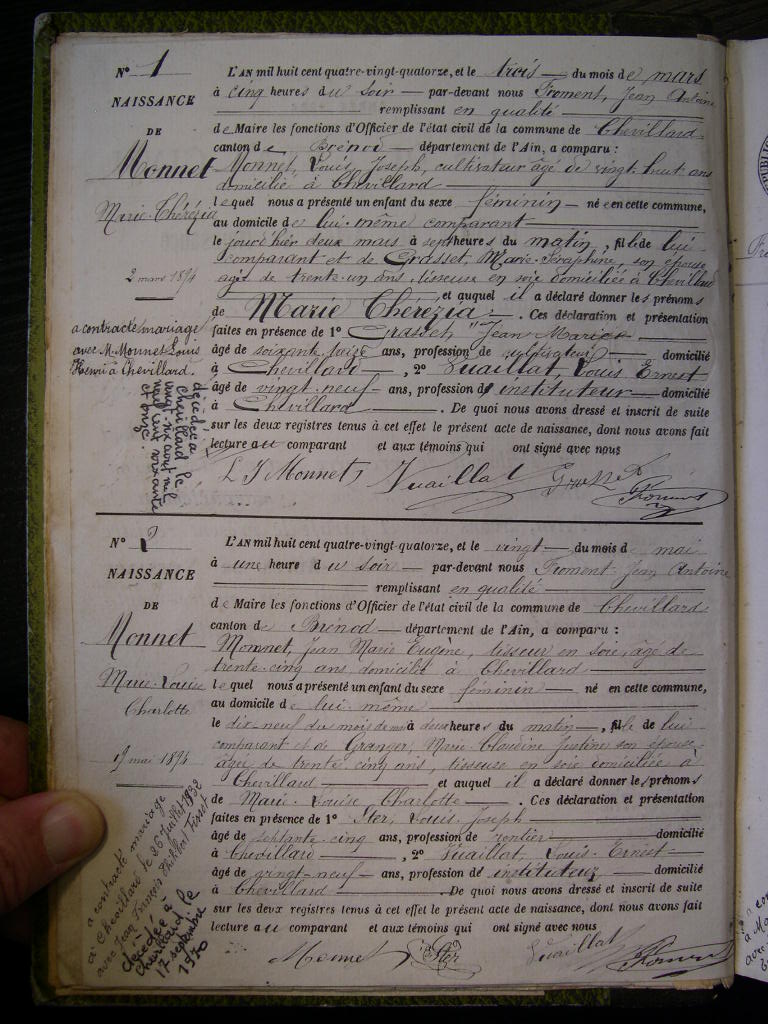 N° 1
NAISSANCE
DE
Monnet
Marie-Thérézia
2 mars 1894
a contracté mariage
avec M. Monnet Louis
Henri à Chevillard.
décédée à
Chevillard le
vingt-six avril mil
neuf cent soixante
et onze.
L'AN mil huit cent quatre-vingt-quatorze, et le trois du mois de mars
à cinq heures du soir par-devant nous Froment, Jean Antoine
remplissant en qualité
de Maire les fonctions d'Officier de l'état civil de la commune de Chevillard
canton de Brénod département de l'Ain, a comparu :
Monnet, Louis, Joseph, cultivateur âgé de vingt huit ans
domicilié à Chevillard
lequel nous a présenté un enfant du sexe féminin née en cette commune,
au domicile de lui-même comparant
le jour d'hier deux mars à sept heures du matin, fille de lui
comparant et de Grasset, Marie-Séraphine, son épouse
agée de trente-un ans, tisseuse en soie domiciliée à Chevillard
et auquel il a déclaré donner les prénoms
de Marie Thérézia. Ces déclaration et présentation
faites en présence de 1° Grasset Jean Marie
âgé de soixante treize ans, profession de cultivateur domicilié
à Chevillard, 2° Vuaillat, Louis Ernest
âgé de vingt-neuf ans, profession d'instituteur domicilié
à Chevillard. De quoi nous avons dressé et inscrit de suite
sur les deux registres tenus à cet effet le présent acte de naissance, dont nous avons fait
lecture au comparant et aux témoins qui ont signé avec nous
L J Monnet Vuaillat Grasset Froment
N° 2
NAISSANCE
DE
Monnet
Marie-Louise
Charlotte
19 mai 1894
a contracté mariage
à Chevillard le 26 juillet 1932
avec Jean François Tissot
décédée à
Chevillard le
17 septembre
1970
L'AN mil huit cent quatre-vingt-quatorze, et le vingt du mois de mai
à une heure du soir par-devant nous Froment Jean Antoine
remplissant en qualité
de Maire les fonctions d'Officier de l'état civil de la commune de Chevillard
canton de Brénod département de l'Ain, a comparu :
Monnet, Jean Marie Eugène, tisseur en soie, âgé de
trente-cinq ans domicilié à Chevillard
lequel nous a présenté un enfant du sexe féminin né en cette commune,
au domicile de lui même
le dix neuf du mois de mai à deux heures du matin, fille de lui
comparant et de Granger, Marie-Claudine Justine son épouse
âgée de trente cinq ans, tisseuse en soie domiciliée à
Chevillard et auquel il a déclaré donner les prénoms
de Marie-Louise Charlotte. Ces déclaration et présentation
faites en présence de 1° Ster, Louis Joseph
âgé de septante cinq ans, profession de rentier domicilié
à Chevillard, 2° Vuaillat, Louis-Ernest
âgé de vingt-neuf ans, profession d'instituteur domicilié
à Chevillard. De quoi nous avons dressé et inscrit de suite
sur les deux registres tenus à cet effet le présent acte de naissance, dont nous avons fait
lecture au comparant et aux témoins qui ont signé avec nous
Monnet Ster Vuaillat Froment